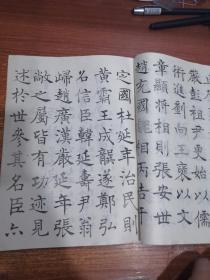 嚴彭祖尹更始以儒
術進劉向王褒以文
章顯將相則張安世
趙充國魏相丙吉于
定國杜延年治民則
黃霸王成龔遂鄭弘
召信臣韓延壽尹翁
歸趙廣漢嚴延年張
敞之屬皆有功迹見
述於世參其名臣亦